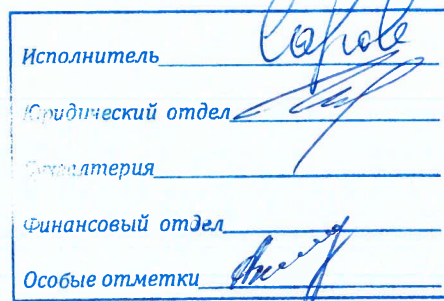 Исполнитель
Юридический отдел
Бухгалтерия
Финансовый отдел
Особые отметки